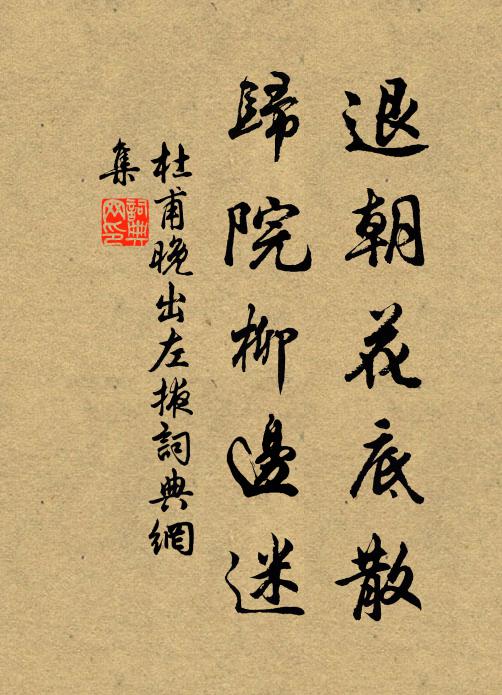 退朝花底散
歸院柳邊迷
杜甫晚出左掖詞典網
集
詞典
网印